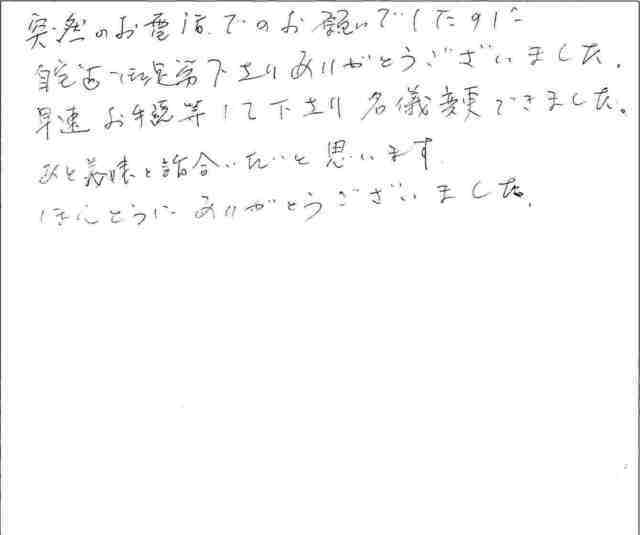 突然のお電話でのお願いでしたのに
自宅迄 下さり ありがとうございました。
早速 お手続等して下さり 名儀変更できました。
と義妹と話合いたいと思います。
ほんとうに ありがとうございました。